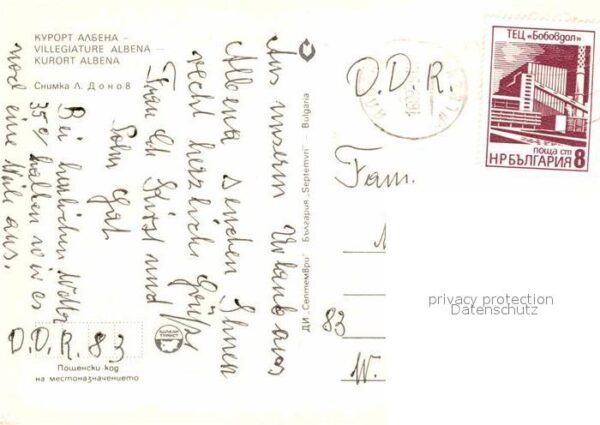 КУРОРТ АЛБЕНА –
VILLEGIATURE ALBENA –
KURORT ALBENA
Снимка Л. Донов
Aus unserm Urlaub aus
Albena senden Ihnen
recht herzliche Grüße
Frau
und
Sohn
Bei herrlichem Wetter
35 c° halten wir es
noch eine Weile aus.
D.D.R. 83
Пощенски код
на местоназначението
ДИ „Септември” България „Septemvri” Bulgaria
D.D.R.
Fam.
83
W.
ТЕЦ „Бобовдол”
поща ст
НР БЪЛГАРИЯ 8
privacy protection
Datenschutz